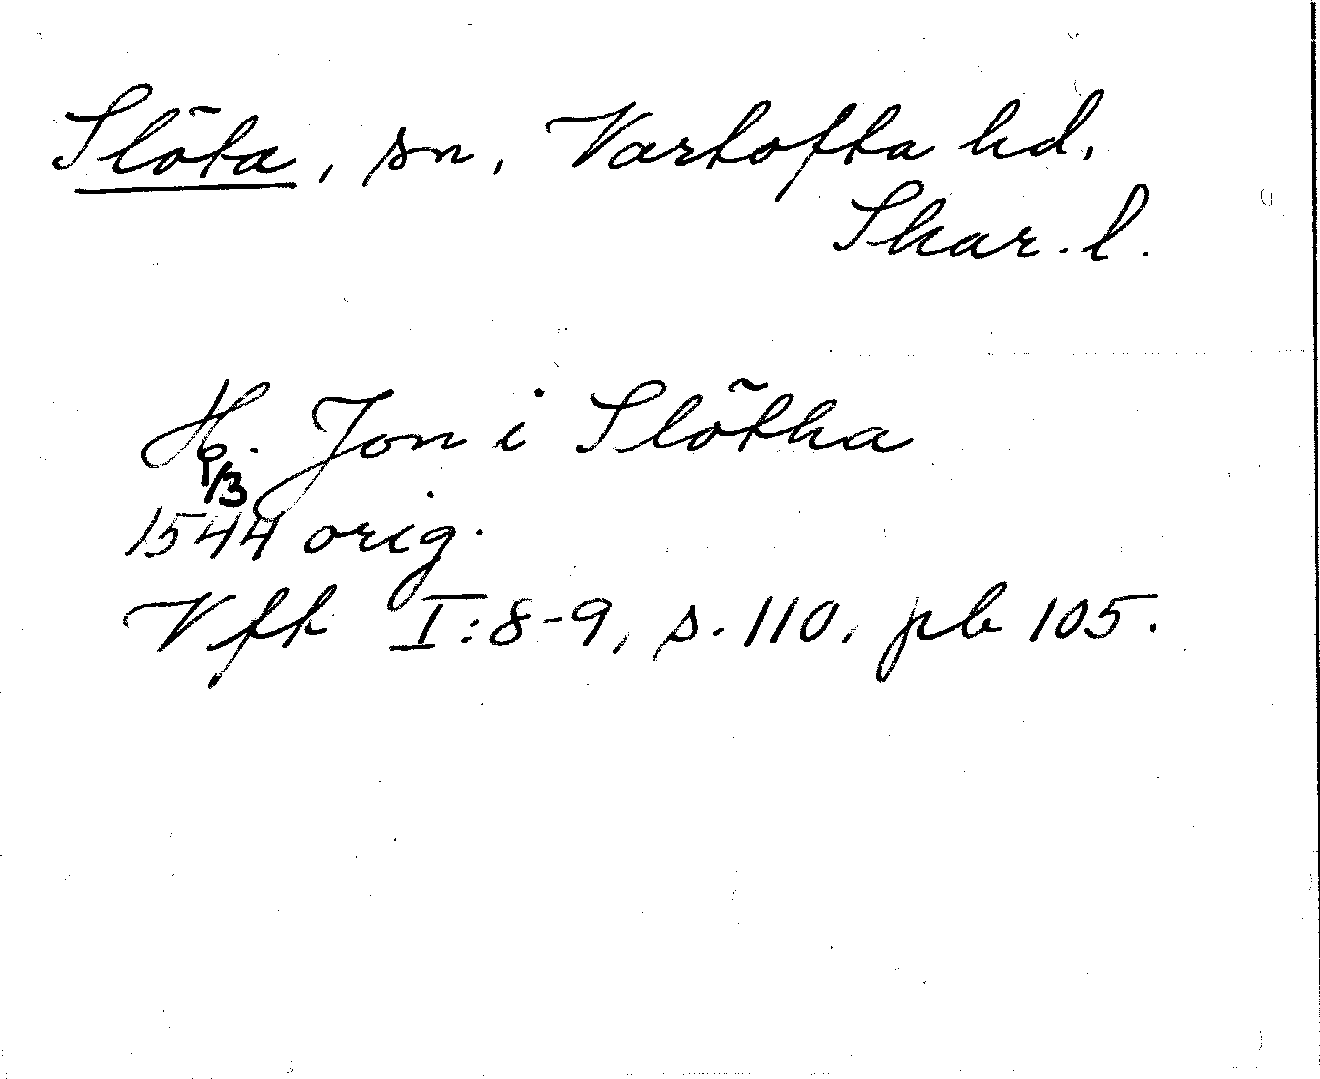 Slöta, sn, Vartofta hd,
Skar. l.
H. Jon i Slötha
1544 9/3 orig.
Vfh I:8-9, s. 110, pb 105.